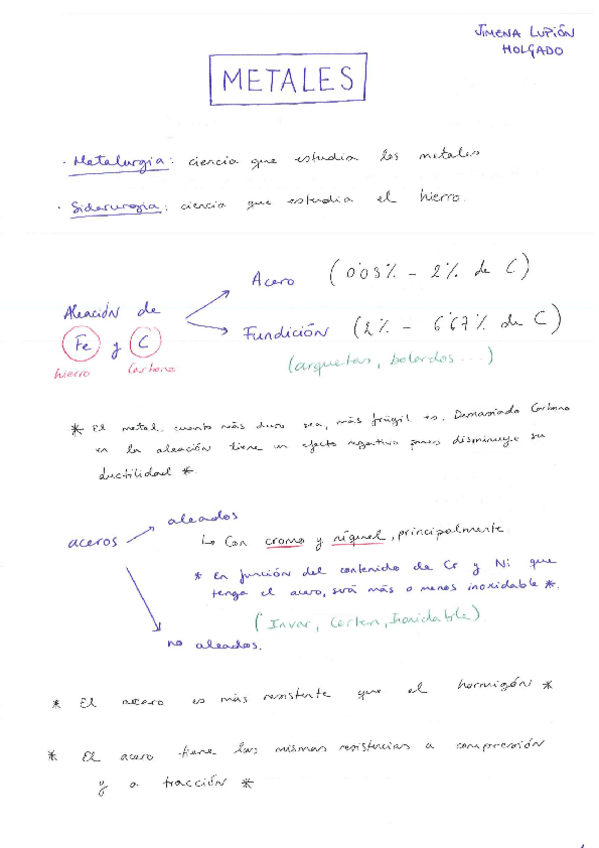 JIMENA LUPIÓN
HOLGADO
METALES
· Metalurgia: ciencia que estudia los metales
· Siderurgia: ciencia que estudia el hierro.
Acero (0'03% - 2% de C)
Aleación de
Fe y C
hierro Carbono
Fundición (2% - 6'67% de C)
(arquetas, bolardos...)
* El metal, cuanto más duro sea, más frágil es. Demasiado Carbono
en la aleación tiene un efecto negativo pues disminuye su
ductilidad *.
aceros
aleados
↳ Con cromo y níquel, principalmente
* En función del contenido de Cr y Ni que
tenga el acero, será más o menos inoxidable *.
(Invar, Corten, Inoxidable)
no aleados.
* El acero es más resistente que el hormigón *
* El acero tiene las mismas resistencias a compresión
y a tracción *